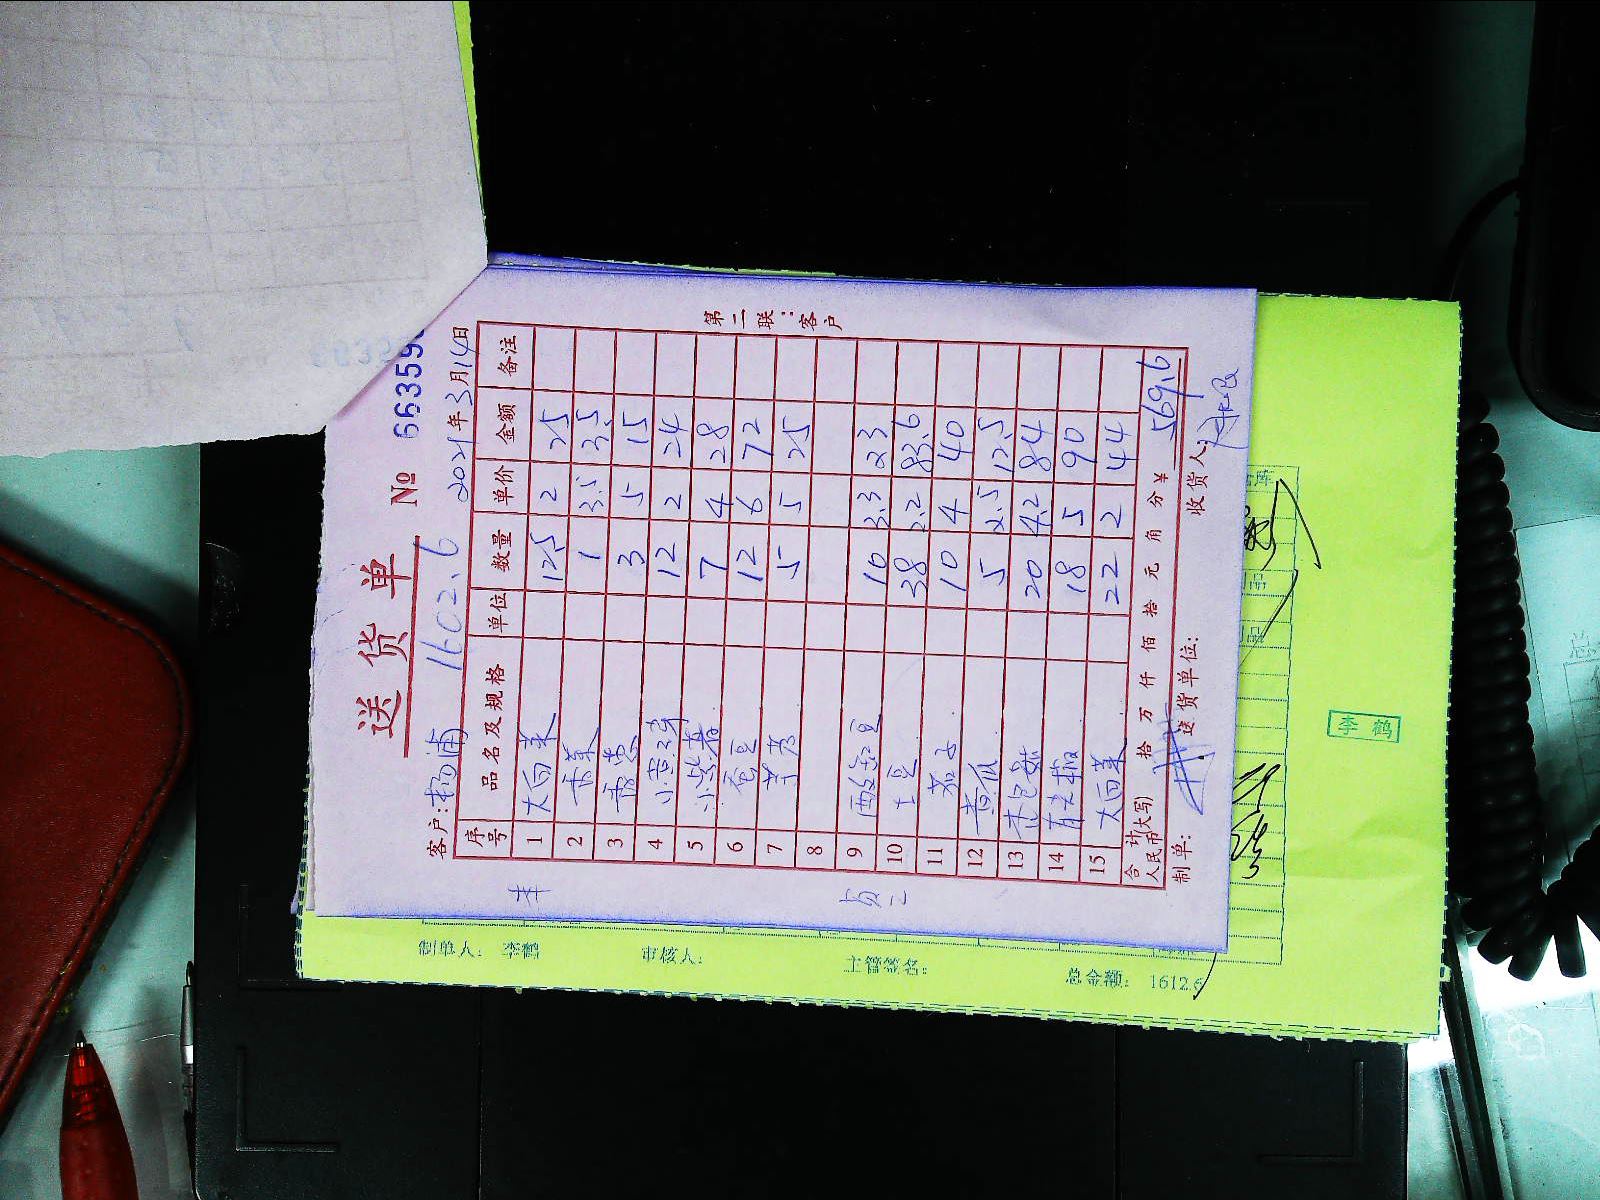 送货单
№ 663596
1602.6
客户: 杨浦 2021年3月14日
序号 品名及规格 单位 数量 单价 金额 备注
1 大白菜 12.5 2 25
2 香菜 1 3.5 3.5
3 香葱 3 5 15
4 12 2 24
5 7 4 28
6 12 6 72
7 5 5 25
8
9 10 3.3 33
10 土豆 38 2.2 83.6
11 茄子 10 4 40
12 黄瓜 5 2.5 12.5
13 20 4.2 84
14 18 5 90
15 大白菜 22 2 44
合计人民币(大写) 拾 万 仟 佰 拾 元 角 分 ¥ 569.6
制单: 送货单位: 收货人:
第二联:客户
制单人: 李鹤 审核人: 主管签名: 总金额: 1612.6
李鹤